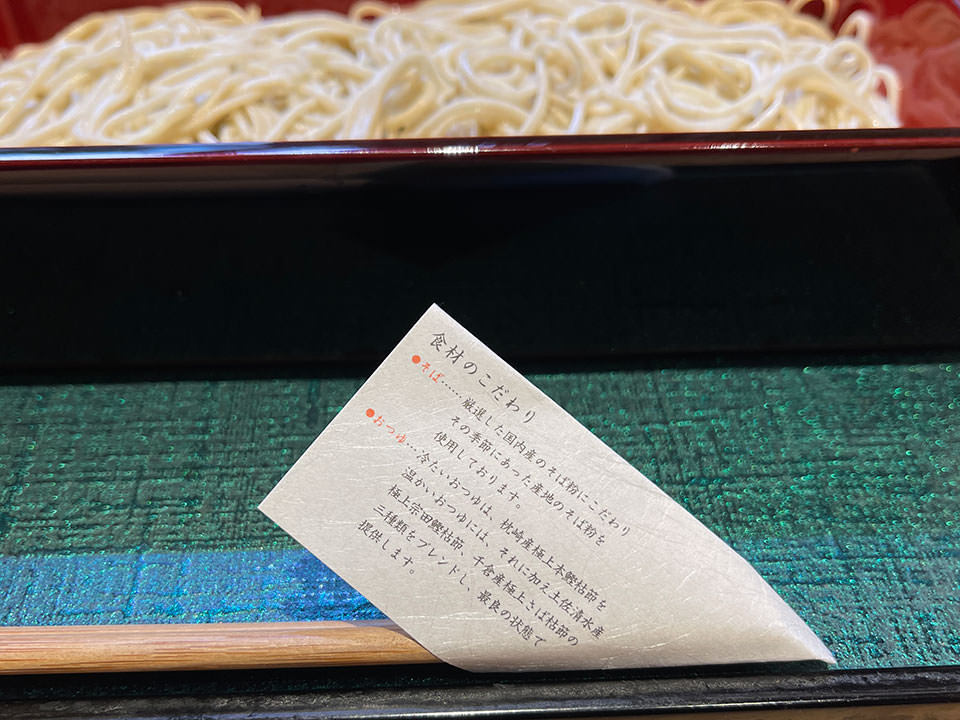 食材のこだわり
●そば……厳選した国内産のそば粉にこだわり
その季節にあった産地のそば粉を
使用しております。
●おつゆ…冷たいおつゆは、枕崎産極上本鰹枯節を
温かいおつゆには、それに加え土佐清水産
極上宗田鰹枯節、千倉産極上さば枯節の
三種類をブレンドし、最良の状態で
提供します。